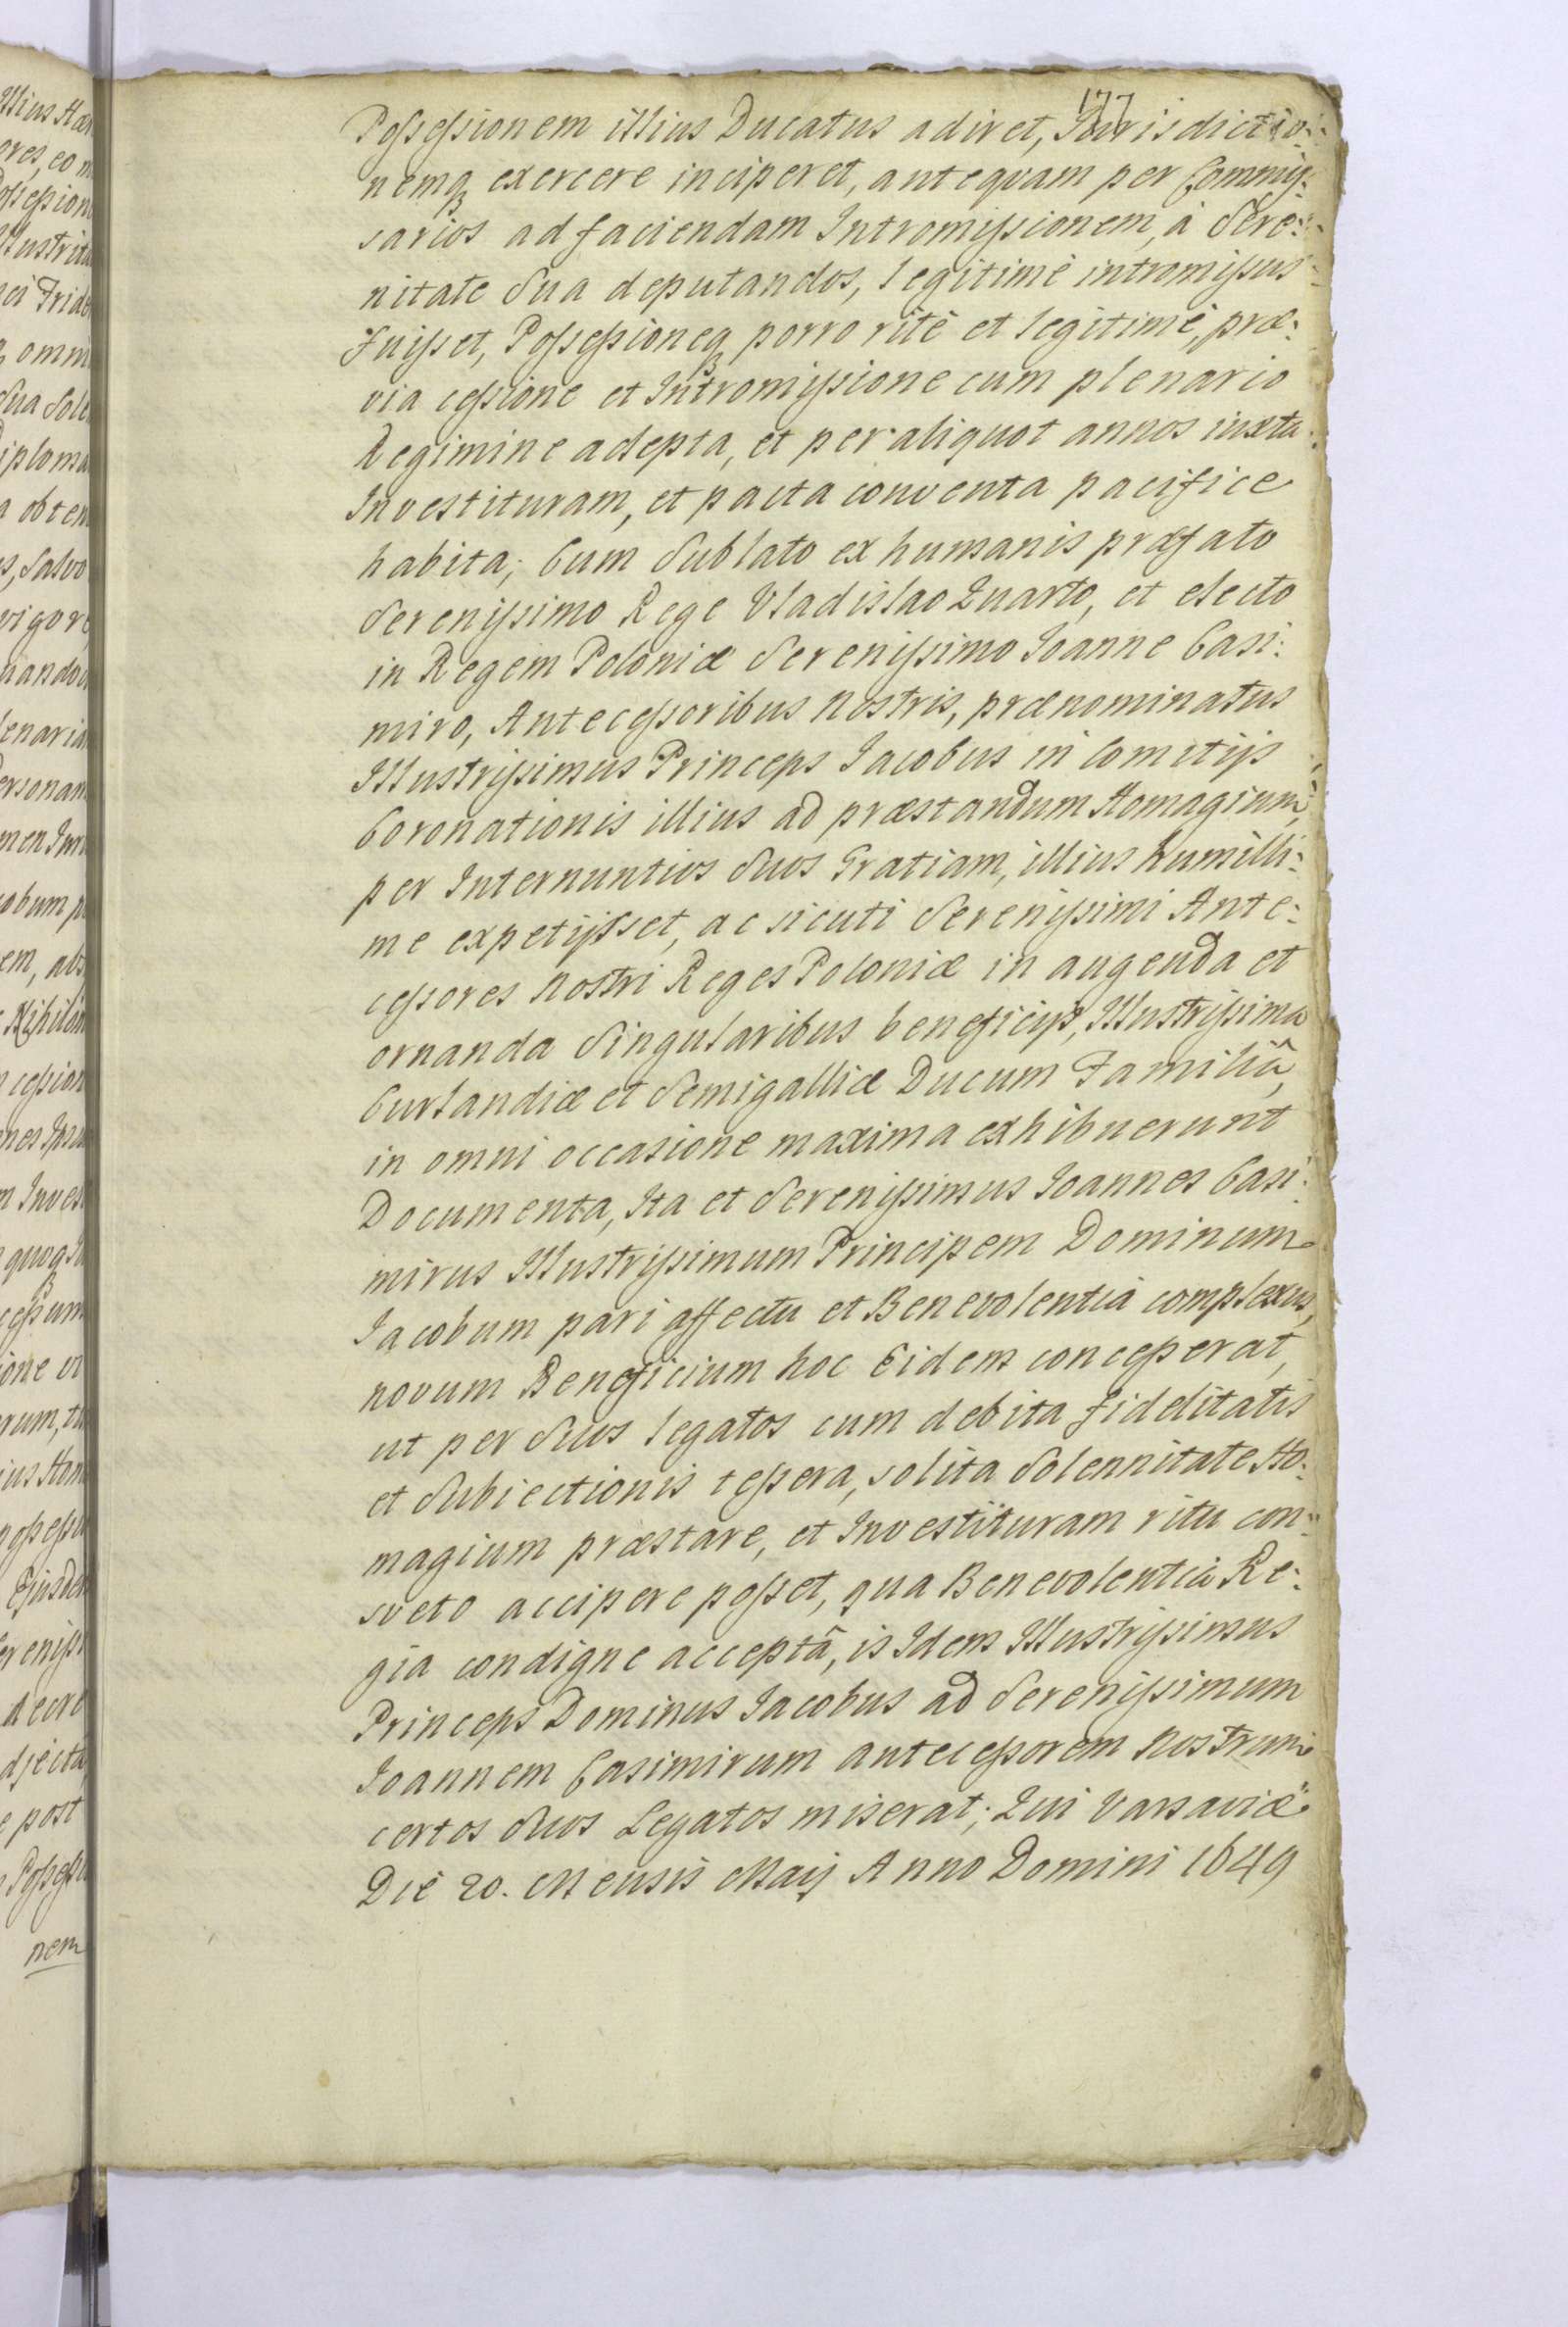 177
Possessionem illius Ducatus adiret, Jurisdictio:
nemq3 exercere inciperet, anteqvam per Commis:
sarios ad faciendam Intromissionem, à Sere:
nitate Sua deputandos, legitimè intromissus
fuisset, Possessioneq3 porro ritè et legitimè, præ:
via cessione et Intromissione cum plenario
Regimine adepta, et per aliquot annos iuxta
Investituram, et pacta conventa pacifice
habita; Cum Sublato ex humanis præfato
Serenissimo Rege Vladislao Quarto, et electo
in Regem Poloniæ Serenissimo Joanne Casi:
miro, Antecessoribus Nostris, prænominatus
Illustrissimus Princeps Jacobus in Comitijs
Coronationis illius ad præstandum Homagium,
per Internuntios Suos Gratiam, illius humilli:
me expetijsset, ac sicuti Serenissimi Ante:
cessores Nostri Reges Poloniæ in augenda et
ornanda Singularibus beneficijs, Illustrissima
Curlandiæ et Semigalliæ Ducum Familiâ,
in omni occasione maxima exhibuerunt
Documenta, Ita et Serenissimus Joannes Casi:
mirus Illustrissimum Principem Dominum
Jacobum pari affectu et Benevolentiâ complexus,
novum Beneficium hoc Eidem concesserat,
ut per Suos legatos cum debita fidelitatis
et Subiectionis tessera, solita Solennitate Ho:
magium præstare, et Investituram ritu con:
sveto accipere posset, qua Benevolentiâ Re:
gia condigne acceptâ, is Idem Illustrissimus
Princeps Dominus Jacobus ad Serenissimum
Joannem Casimirum antecessorem Nostrum
certos Suos Legatos miserat; Qui Varsaviæ
Die 20. Mensis Maij Anno Domini 1649